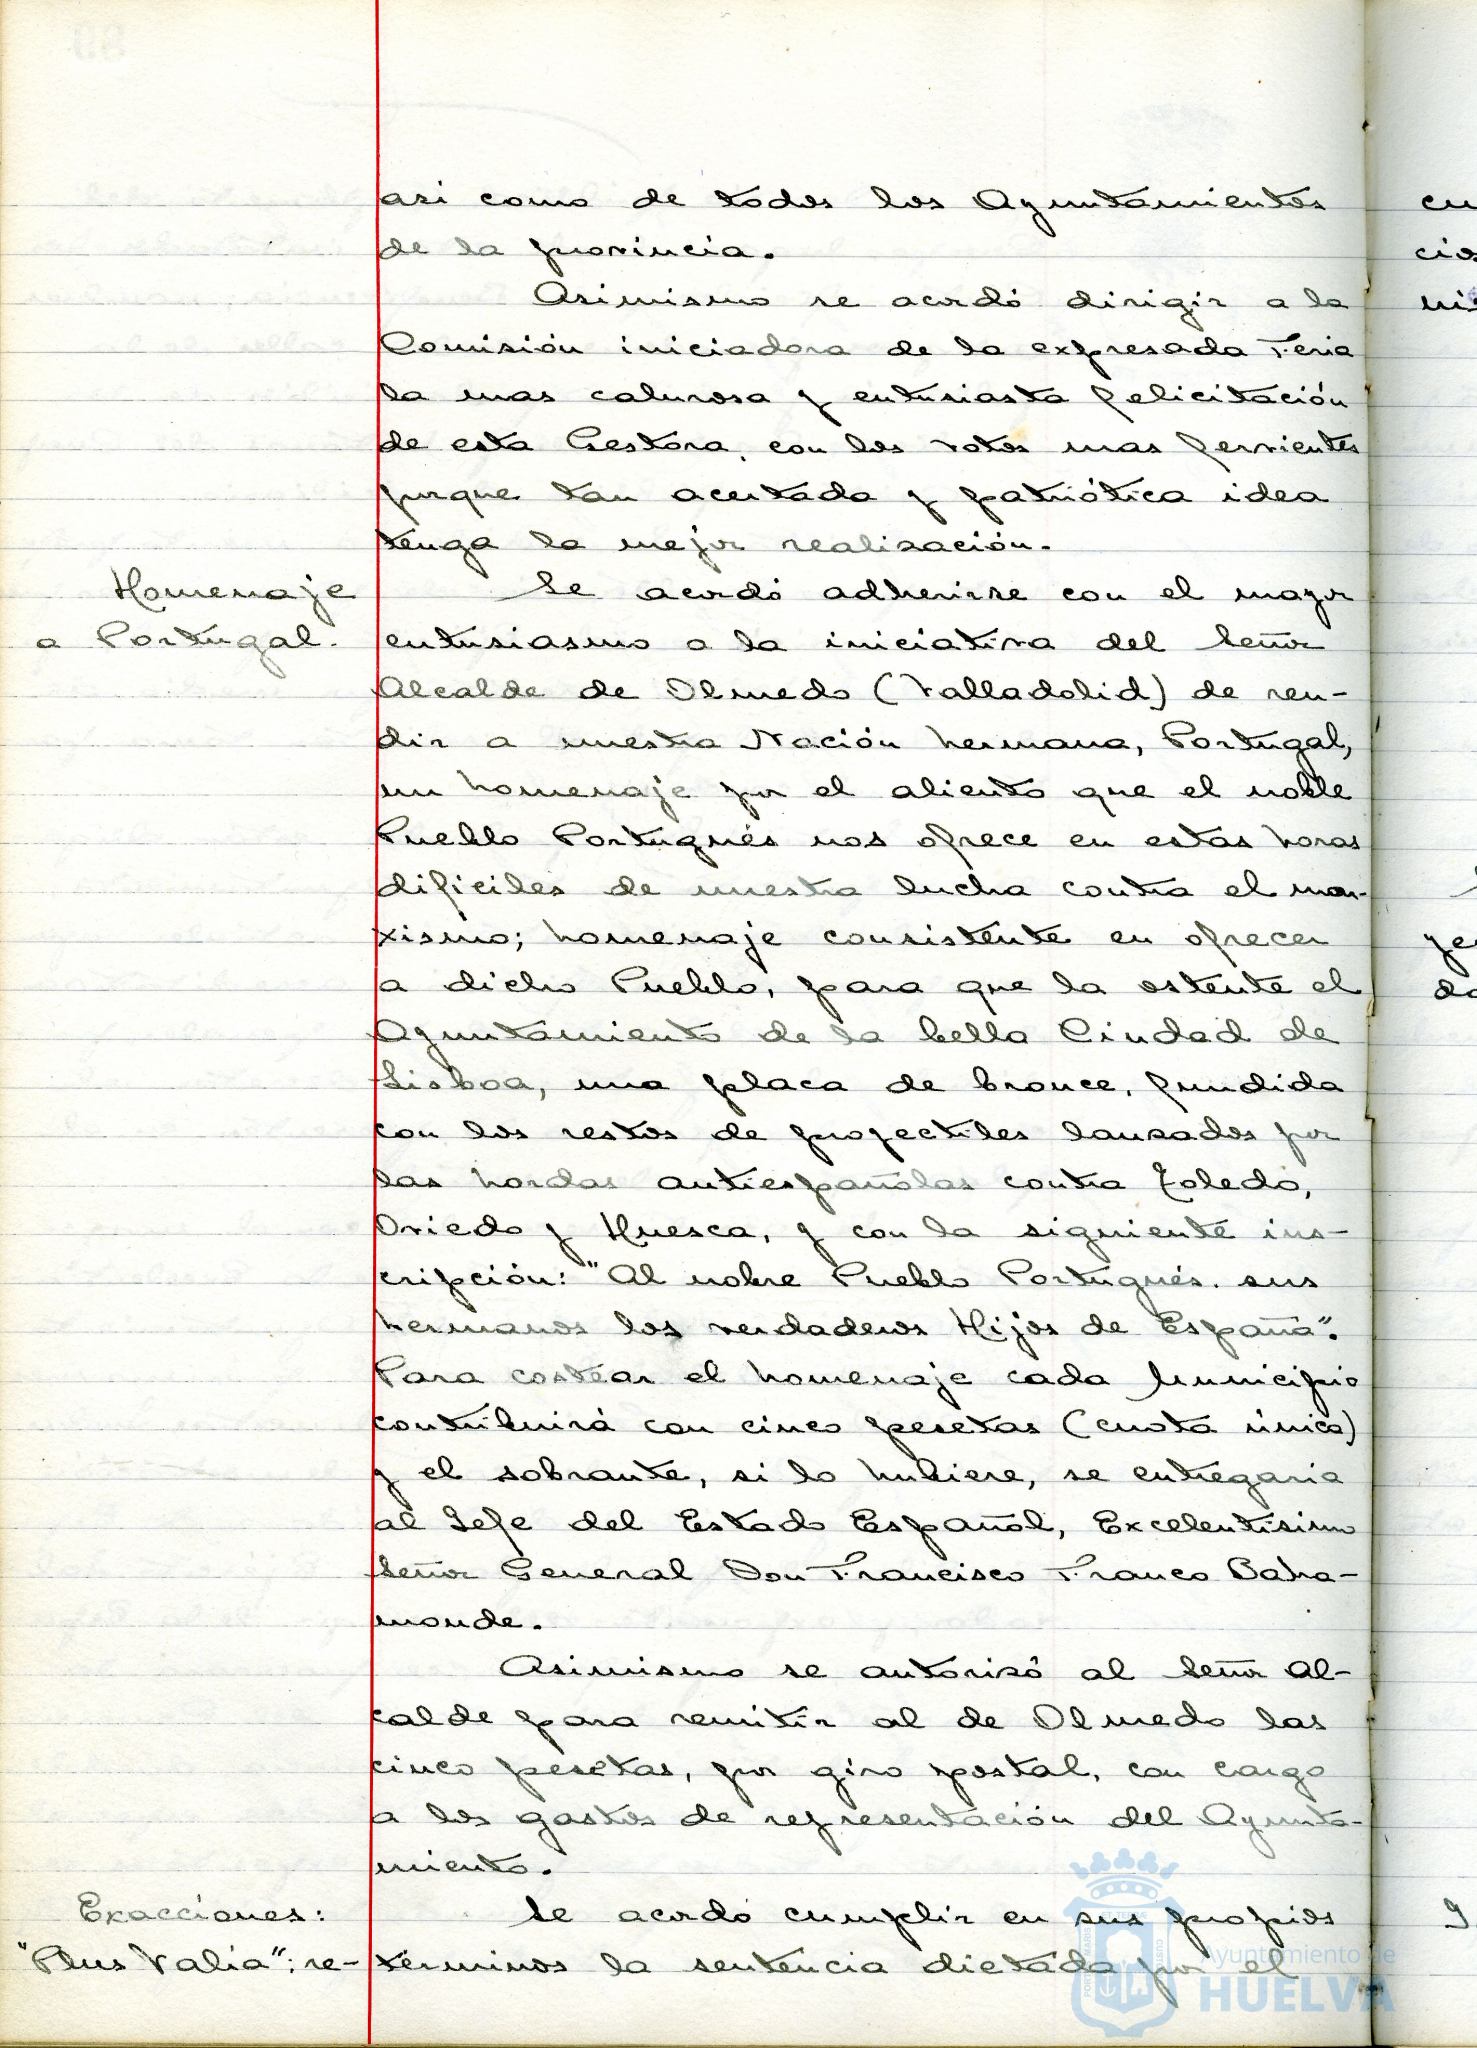 asi como de todos los Ayuntamientos
de la provincia.
Asimismo se acordó dirigir a la
Comisión iniciadora de la expresada Feria
la mas calurosa y entusiasta felicitación
de esta Gestora, con los votos mas fervientes
porque tan acertada y patriótica idea
tenga la mejor realización.
Homenaje
a Portugal.
Se acordó adherirse con el mayor
entusiasmo a la iniciativa del Señor
Alcalde de Olmedo (Valladolid) de ren-
dir a nuestra Nación hermana, Portugal,
un homenaje por el aliento que el noble
Pueblo Portugués nos ofrece en estas horas
dificiles de nuestra lucha contra el mar-
xismo; homenaje consistente en ofrecer
a dicho Pueblo, para que la ostente el
Ayuntamiento de la bella Ciudad de
Lisboa, una placa de bronce, fundida
con los restos de proyectiles lanzados por
las hordas antiespañolas contra Toledo,
Oviedo y Huesca, y con la siguiente ins-
cripción: "Al nobre Pueblo Portugués. sus
hermanos los verdaderos Hijos de España".
Para costear el homenaje cada Municipio
contribuirá con cinco pesetas (cuota única)
y el sobrante, si lo hubiere, se entregaria
al Jefe del Estado Español, Excelentisimo
Señor General Don Francisco Franco Baha-
monde.
Asimismo se autorizó al Señor Al-
calde para remitir al de Olmedo las
cinco pesetas, por giro postal, con cargo
a los gastos de representación del Ayunta-
miento.
Exacciones:
"Plus Valia"; re-
Se acordó cumplir en sus propios
términos la sentencia dictada por el
Ayuntamiento de
HUELVA